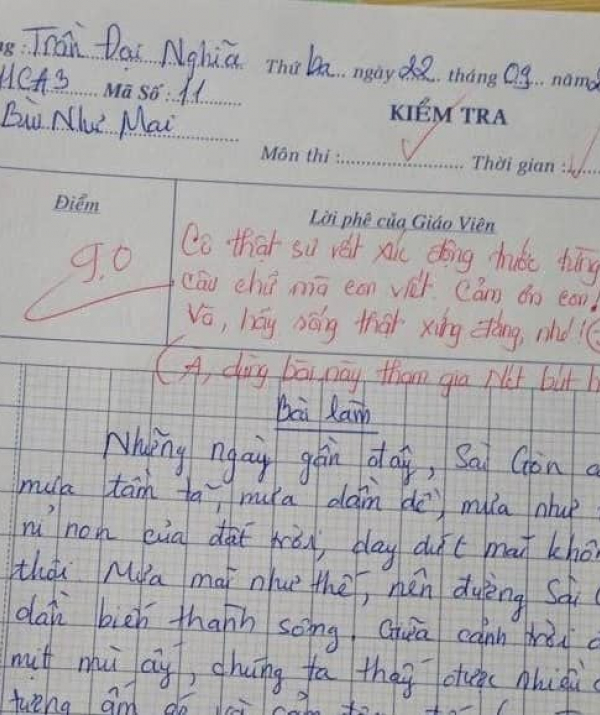 Trần Đại Nghĩa Thứ ba.. ngày 22. tháng 09.. năm
11CA3 Mã Số : 11
Bùi Như Mai KIỂM TRA
Môn thi : Thời gian :
Điểm Lời phê của Giáo Viên
9.0 Cô thật sự rất xúc động trước từng
câu chữ mà con viết. Cảm ơn con!
Và, hãy sống thật xứng đáng, nhé!
(À, dùng bài này tham gia Nét bút
Bài làm
Những ngày gần đây, Sài Gòn
mưa tầm tã, mưa dầm dề, mưa như
nỉ non của đất trời, day dứt mãi
thôi. Mưa mãi như thế, nên đường Sài
dần biến thành sông. Giữa cảnh trời
mịt mù ấy, chúng ta thấy được nhiều
tượng ấm